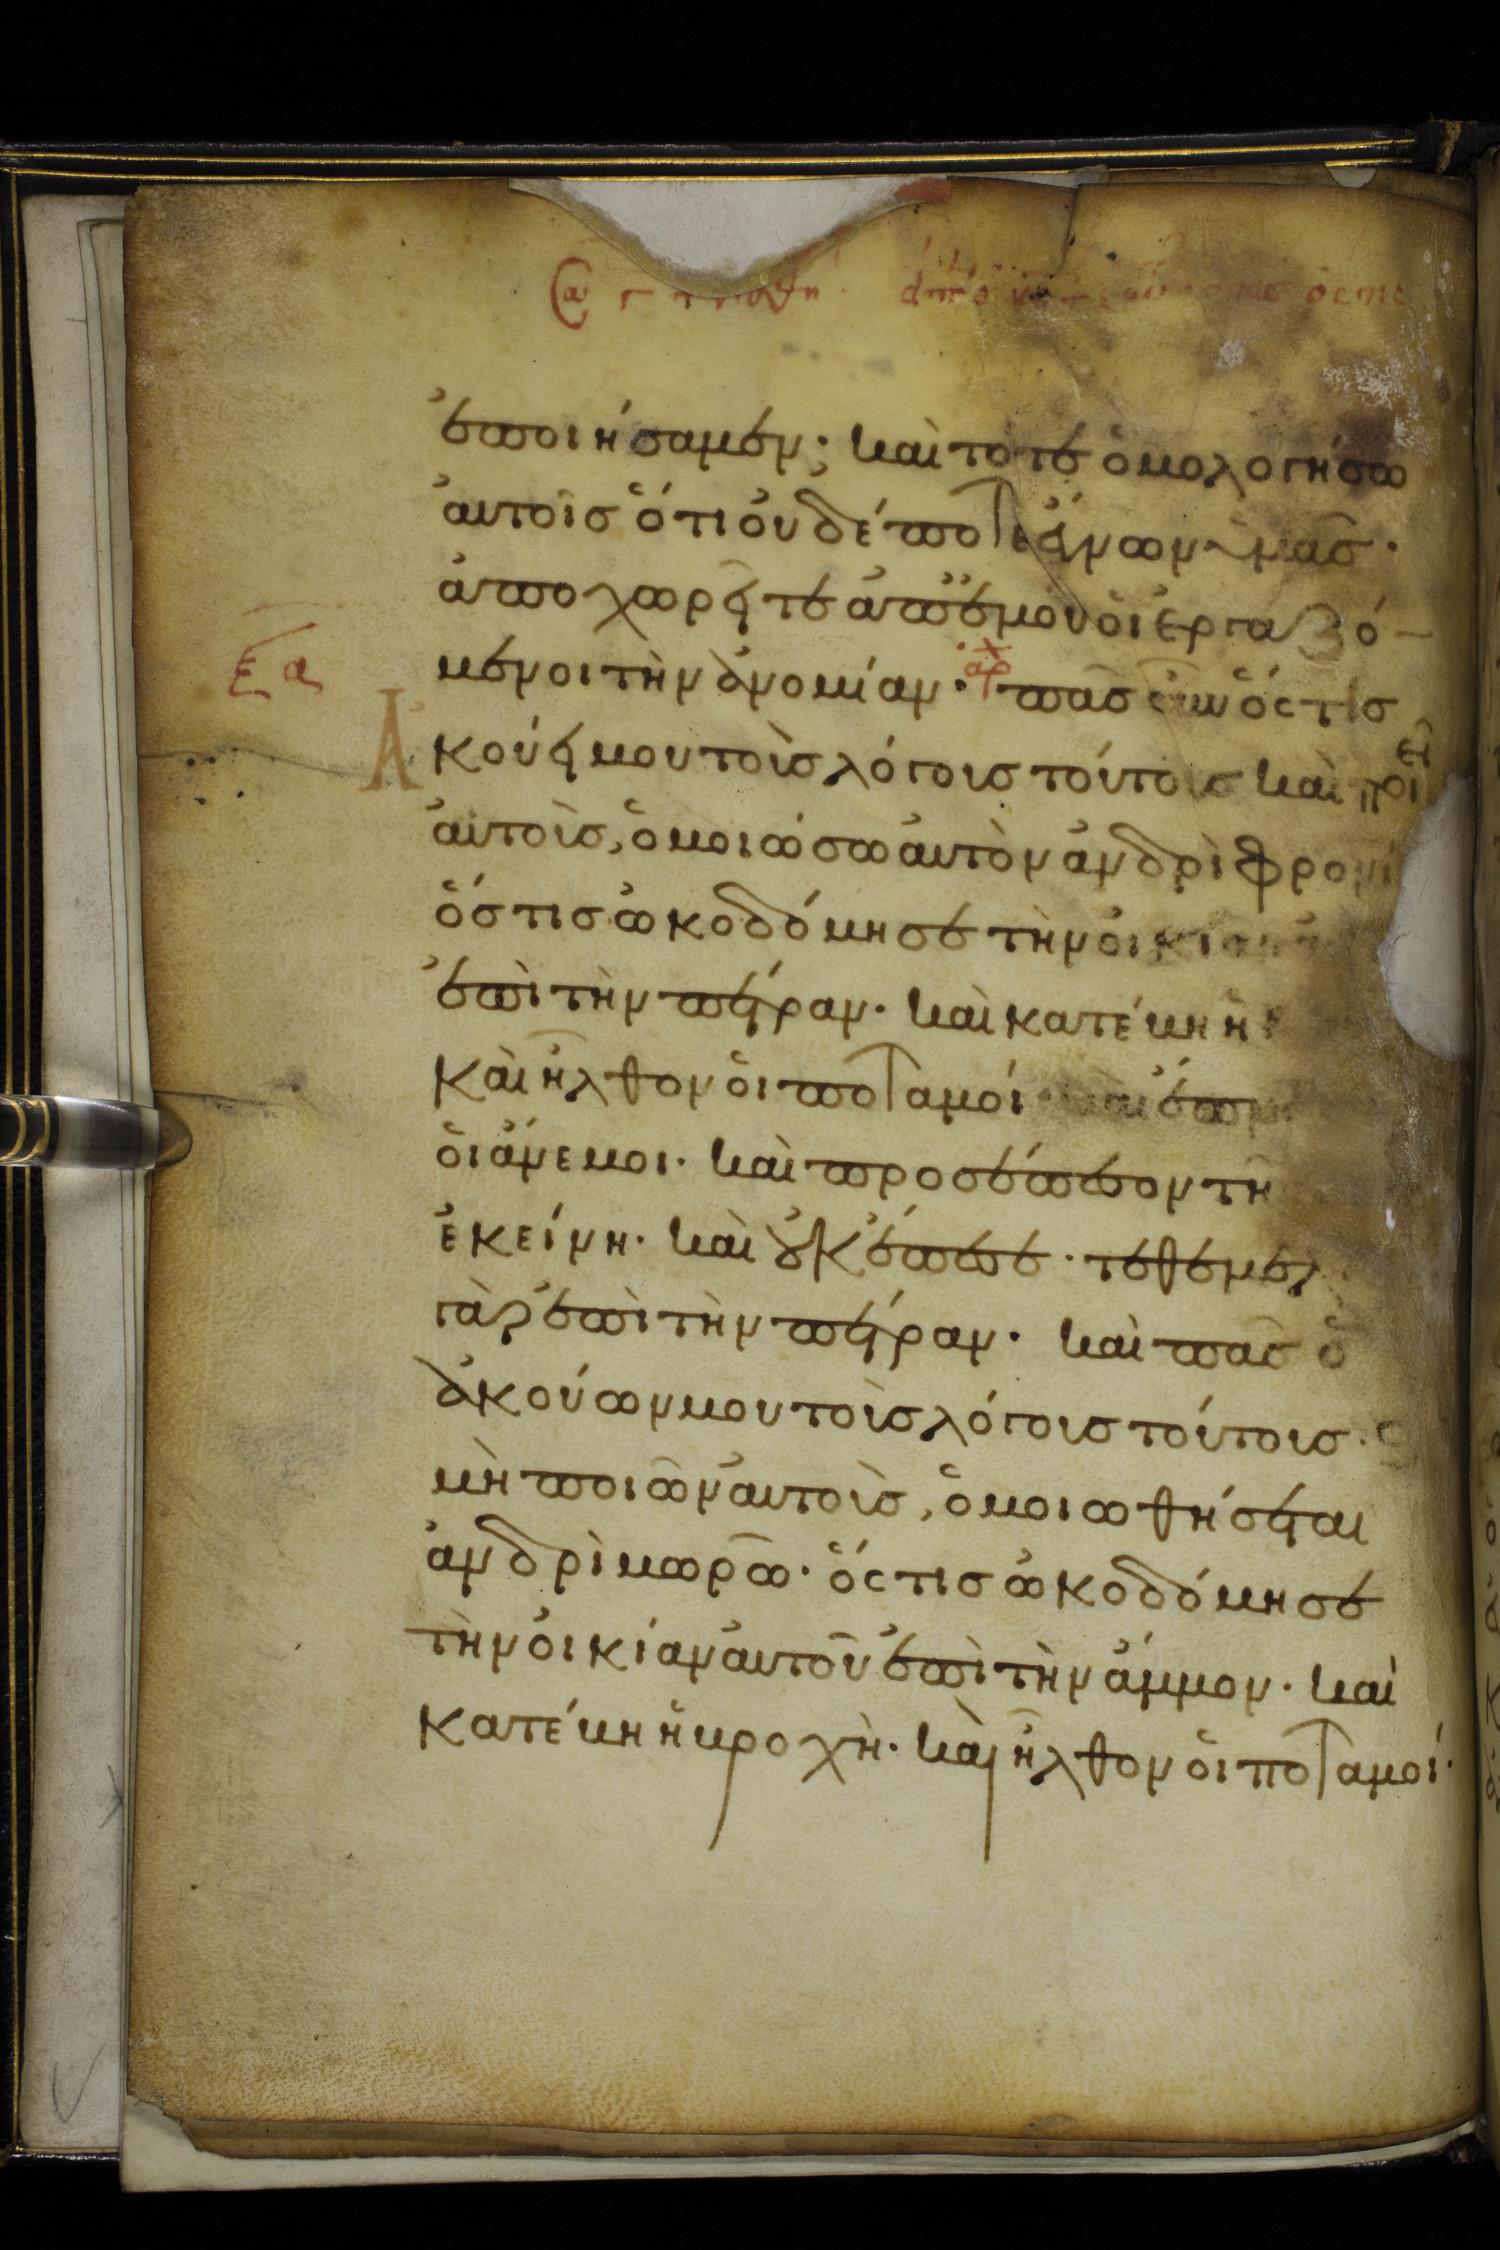 ἐποιήσαμεν· καὶ τότε ὁμολογήσω
αὐτοῖσ ὅτι οὐδέποτε ἔγνων ὑμᾶσ·
ἀποχωρεῖτε ἀπ' ἐμοῦ οἱ ἐργαζό
μενοι τὴν ἀνομίαν· ἀρχ πᾶσ οὖν ὅστισ
εα
Ἀκούει μου τοὺσ λόγουσ τούτουσ καὶ ποιεῖ
αὐτοὺσ, ὁμοιώσω αὐτὸν ἀνδρὶ
ὅστισ ὠκοδόμησε τὴν οἰκίαν
ἐπὶ τὴν πέτραν· καὶ κατέβη ἡ
καὶ ἦλθον οἱ ποταμοί καὶ
οἱ ἄνεμοι· καὶ προσέπεσον τῆ
ἐκείνη· καὶ οὐκ ἔπεσε·
γὰρ ἐπὶ τὴν πέτραν· καὶ πᾶσ ὁ
ἀκούων μου τοὺσ λόγουσ τούτουσ·
μὴ ποιῶν αὐτοὺσ, ὁμοιωθήσεται
ἀνδρὶ μωρῶ· ὅστισ ὠκοδόμησε
τὴν οἰκίαν αὐτοῦ ἐπὶ τὴν ἄμμον· καὶ
κατέβη ἡ βροχὴ· καὶ ἦλθον οἱ ποταμοί·